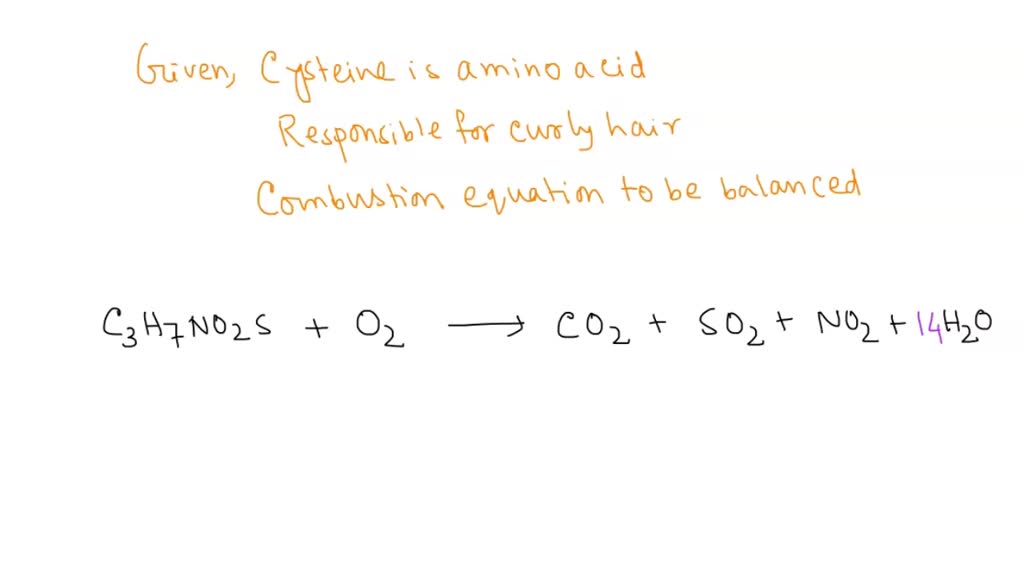 Given, Cysteine is amino acid
Responsible for curly hair
Combustion equation to be balanced
C3H7NO2S + O2 → CO2 + SO2 + NO2 + 14H2O